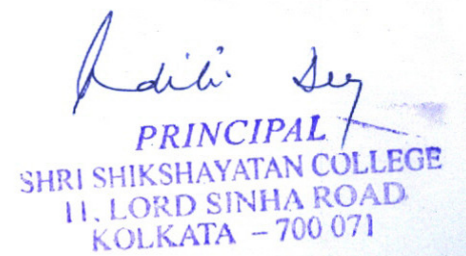 Aditi Dey
PRINCIPAL
SHRI SHIKSHAYATAN COLLEGE
11, LORD SINHA ROAD
KOLKATA - 700 071